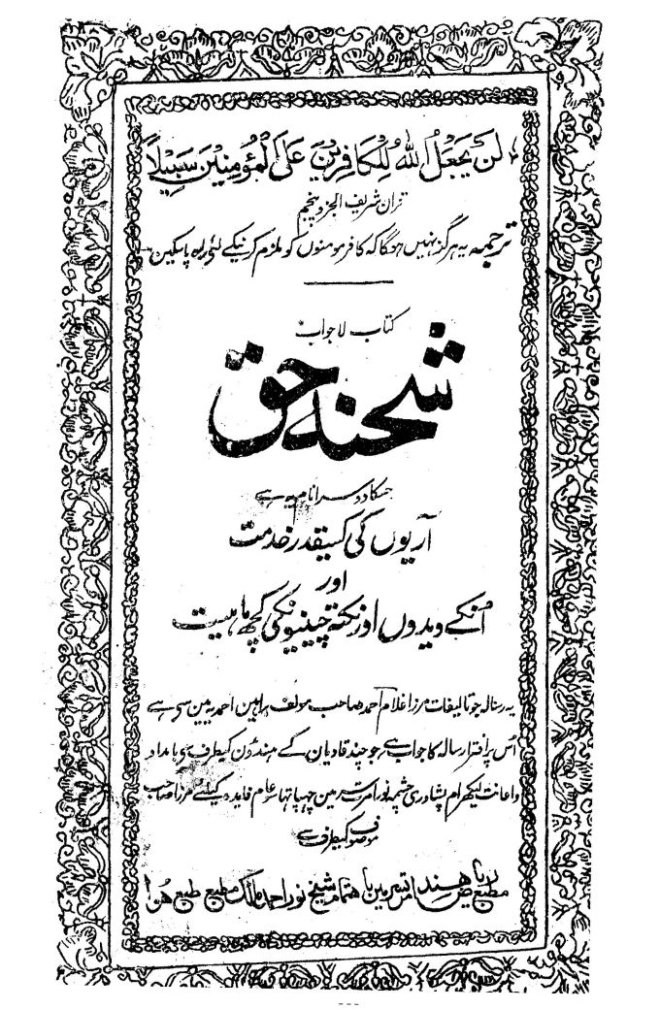 لَنْ یَجْعَلَ اللہُ لِلْکَافِرِیْنَ عَلَی الْمُؤْمِنِیْنَ سَبِیْلًا
قران شریف الجزو پنجم
ترجمہ یہ ہرگز نہیں ہوگا کہ کافر مومنوں کو ملزم کرنیکے لئے راہ پاسکین
کتاب لاجواب
شحنہ حق
جسکا دوسرا نام یہ ہے
آریوں کی کسیقدر خدمت
اور
اُنکے ویدوں اور نکتہ چینیونکی کچھ ماہیت
یہ رسالہ جو تالیفات مرزا غلام احمد صاحب مولف براہین احمدیہ مین سے ہے
اُس پر افترا رسالہ کا جواب ہے جو چند قادیان کے ہندؤن کیطرف سے بامداد
و اعانت لیکھرام پشاوری چشمہ نور امرتسر مین چہپا تہا سو عام فایدہ کیلئے مرزا صاحب
موصوف کیطرف سے
مطبع ریاض ہند امرتسر مین باہتمام شیخ نور احمد مالک مطبع طبع ہوا